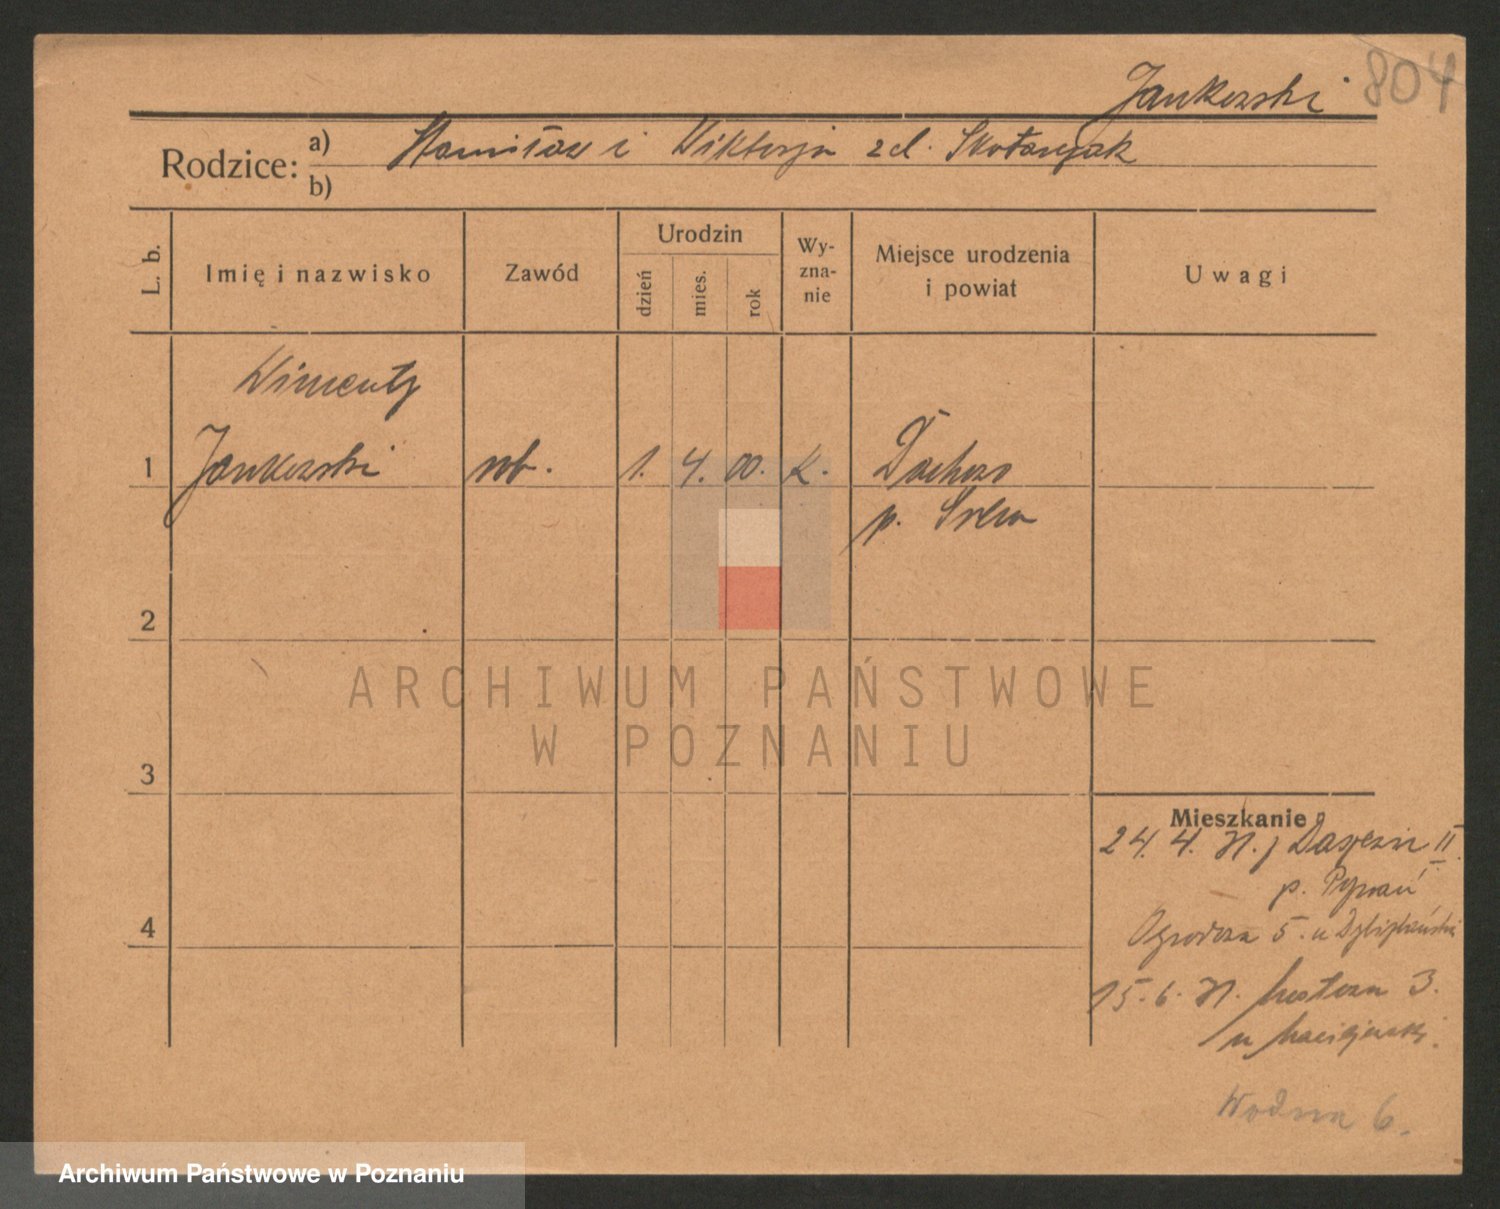 804
Jankowski
Rodzice: a) Stanisław i Wiktorja zd. Skotarczak
b)
L. b. Imię i nazwisko Zawód Urodzin dzień mies. rok Wy-zna-nie Miejsce urodzenia i powiat Uwagi
Wincenty
1 Jankowski rob. 1. 4. 00. k.
p. Śrem
2
ARCHIWUM PAŃSTWOWE
W POZNANIU
3
Mieszkanie
24. 4. 31. z II
p.
4
Ogrodowa 5. u
15. 6. 31. 3.
u Maciejewski.
Wodna 6.
Archiwum Państwowe w Poznaniu